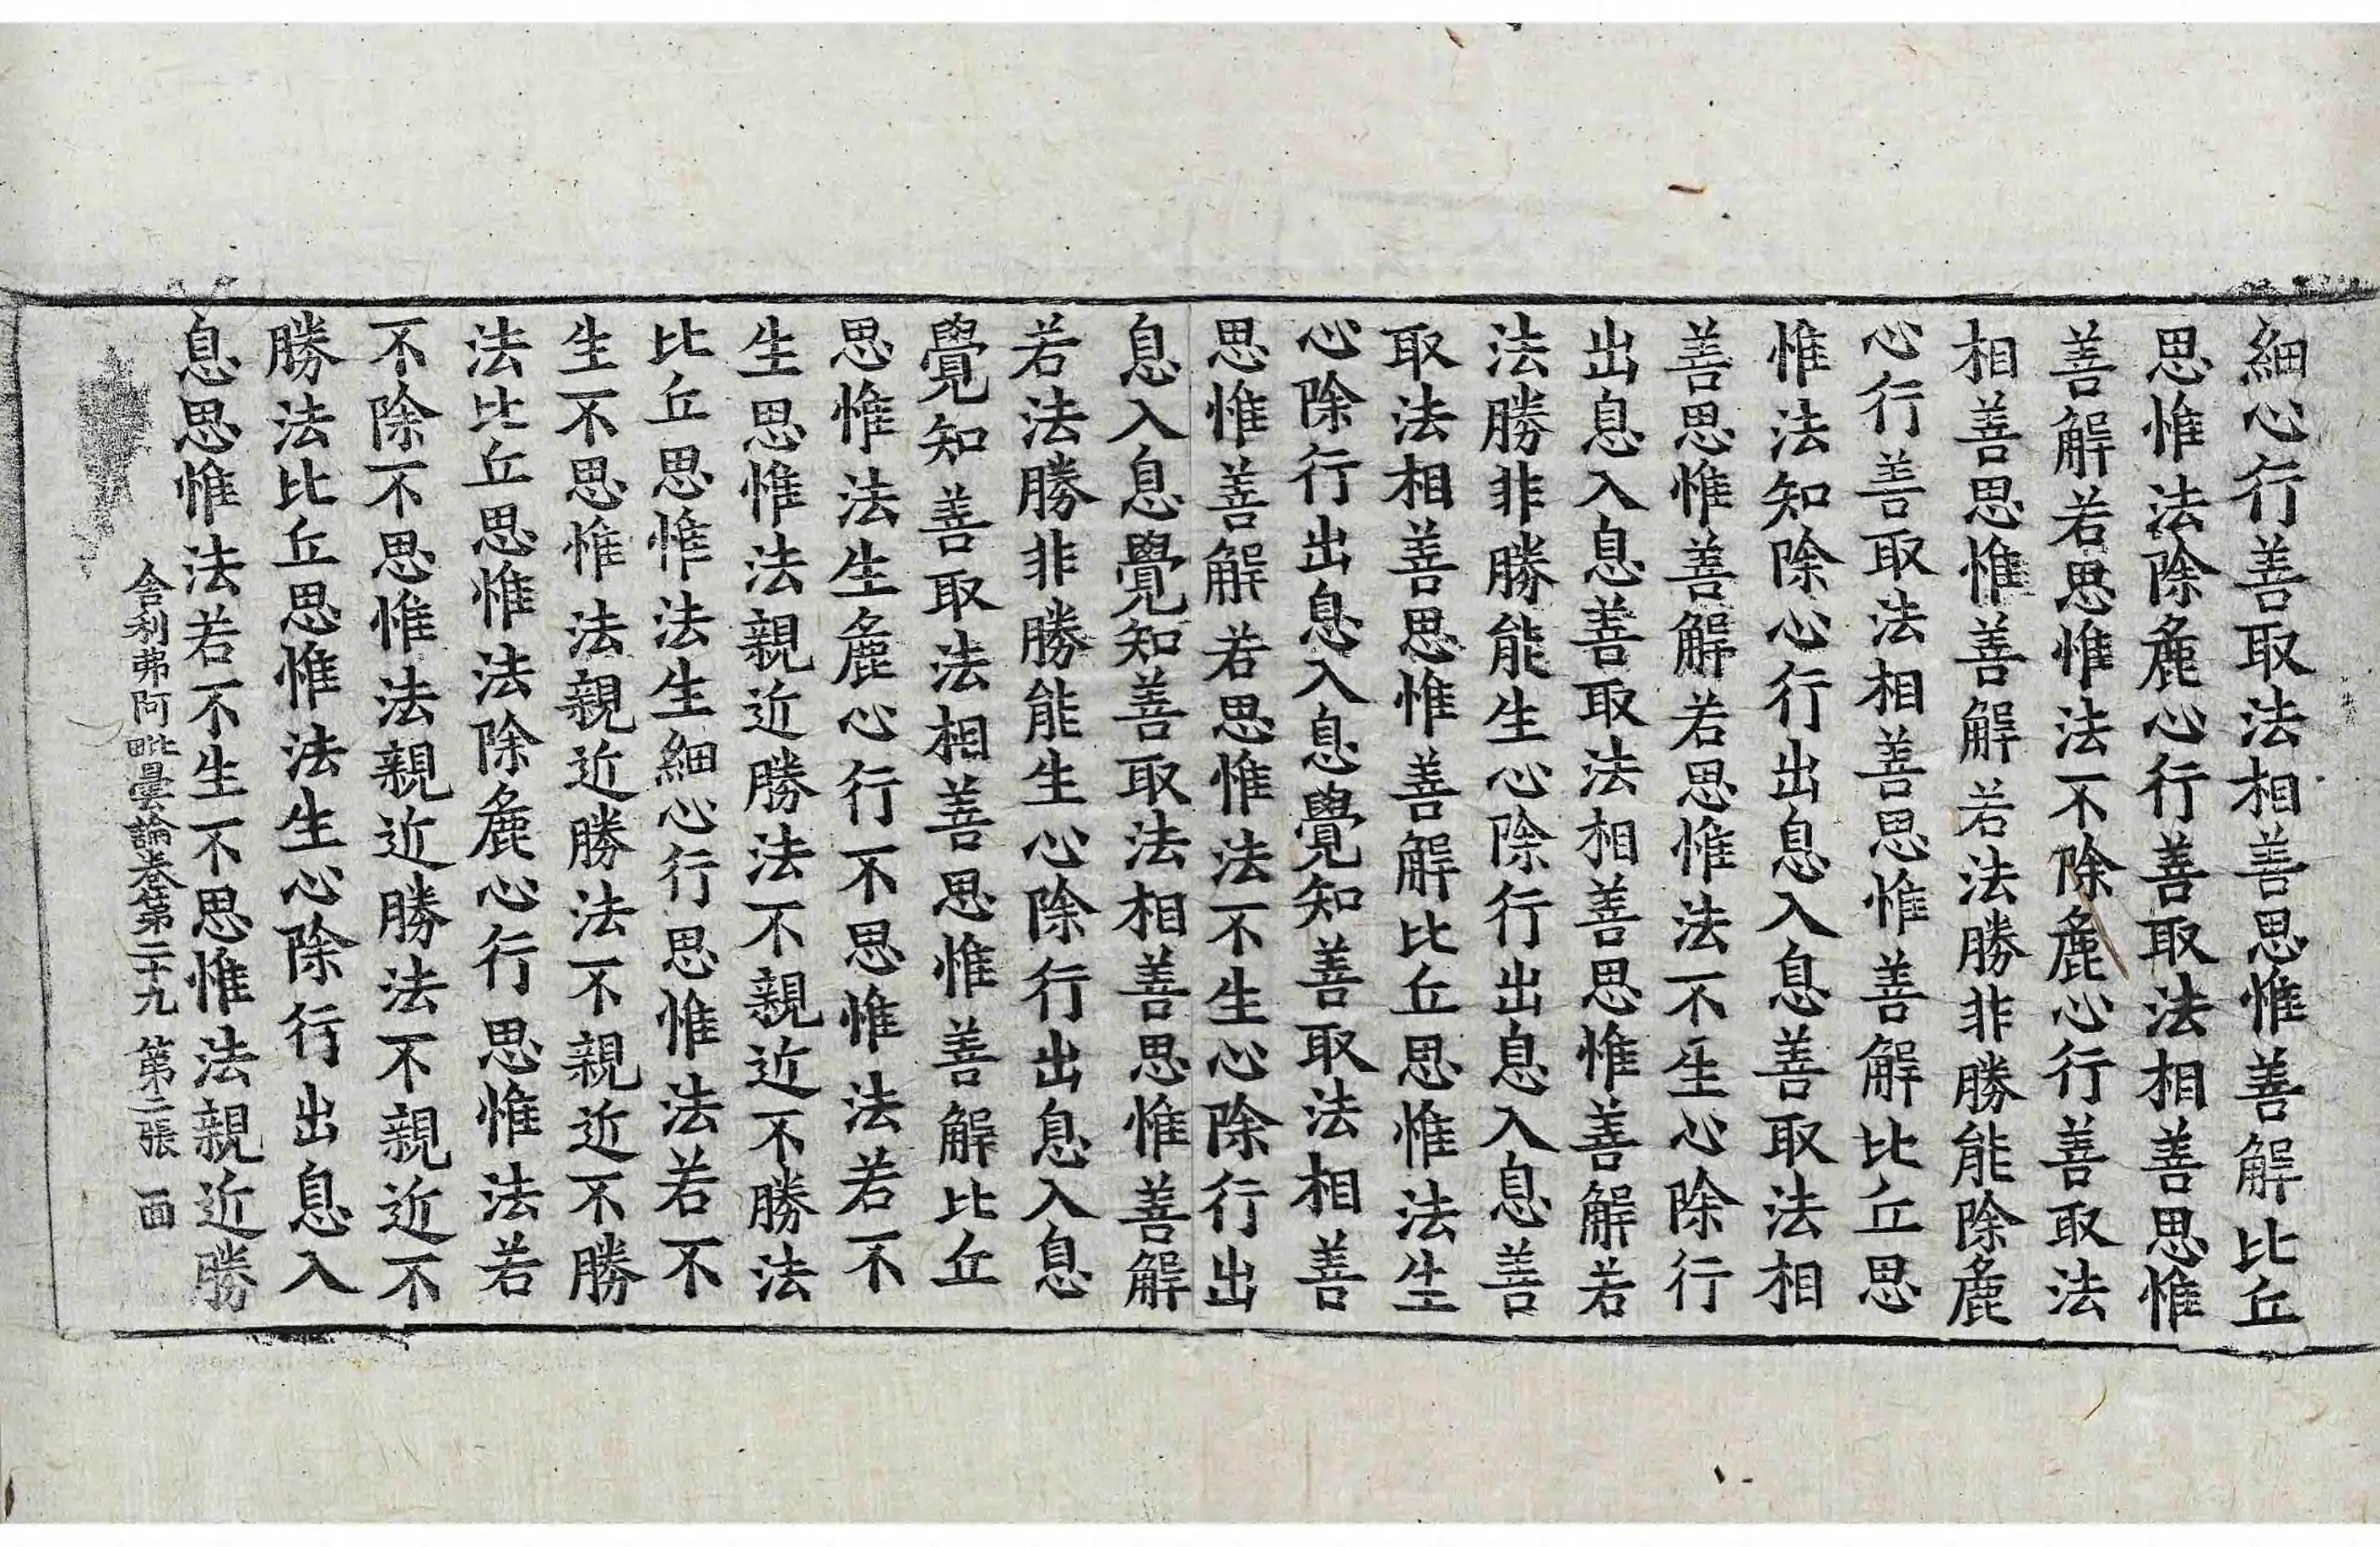 細心行善取法相善思惟善解比丘
思惟法除麁心行善取法相善思惟
善解若思惟法不除麁心行善取法
相善思惟善解若法勝非勝能除麁
心行善取法相善思惟善解比丘思
惟法知除心行出息入息善取法相
善思惟善解若思惟法不生心除行
出息入息善取法相善思惟善解若
法勝非勝能生心除行出息入息善
取法相善思惟善解比丘思惟法生
心除行出息入息覺知善取法相善
思惟善解若思惟法不生心除行出
息入息覺知善取法相善思惟善解
若法勝非勝能生心除行出息入息
覺知善取法相善思惟善解比丘
思惟法生麁心行不思惟法若不
生思惟法親近勝法不親近不勝法
比丘思惟法生細心行思惟法若不
生不思惟法親近勝法不親近不勝
法比丘思惟法除麁心行思惟法若
不除不思惟法親近勝法不親近不
勝法比丘思惟法生心除行出息入
息思惟法若不生不思惟法親近勝
舍利弗阿毗曇論卷第二十九 第二張 面